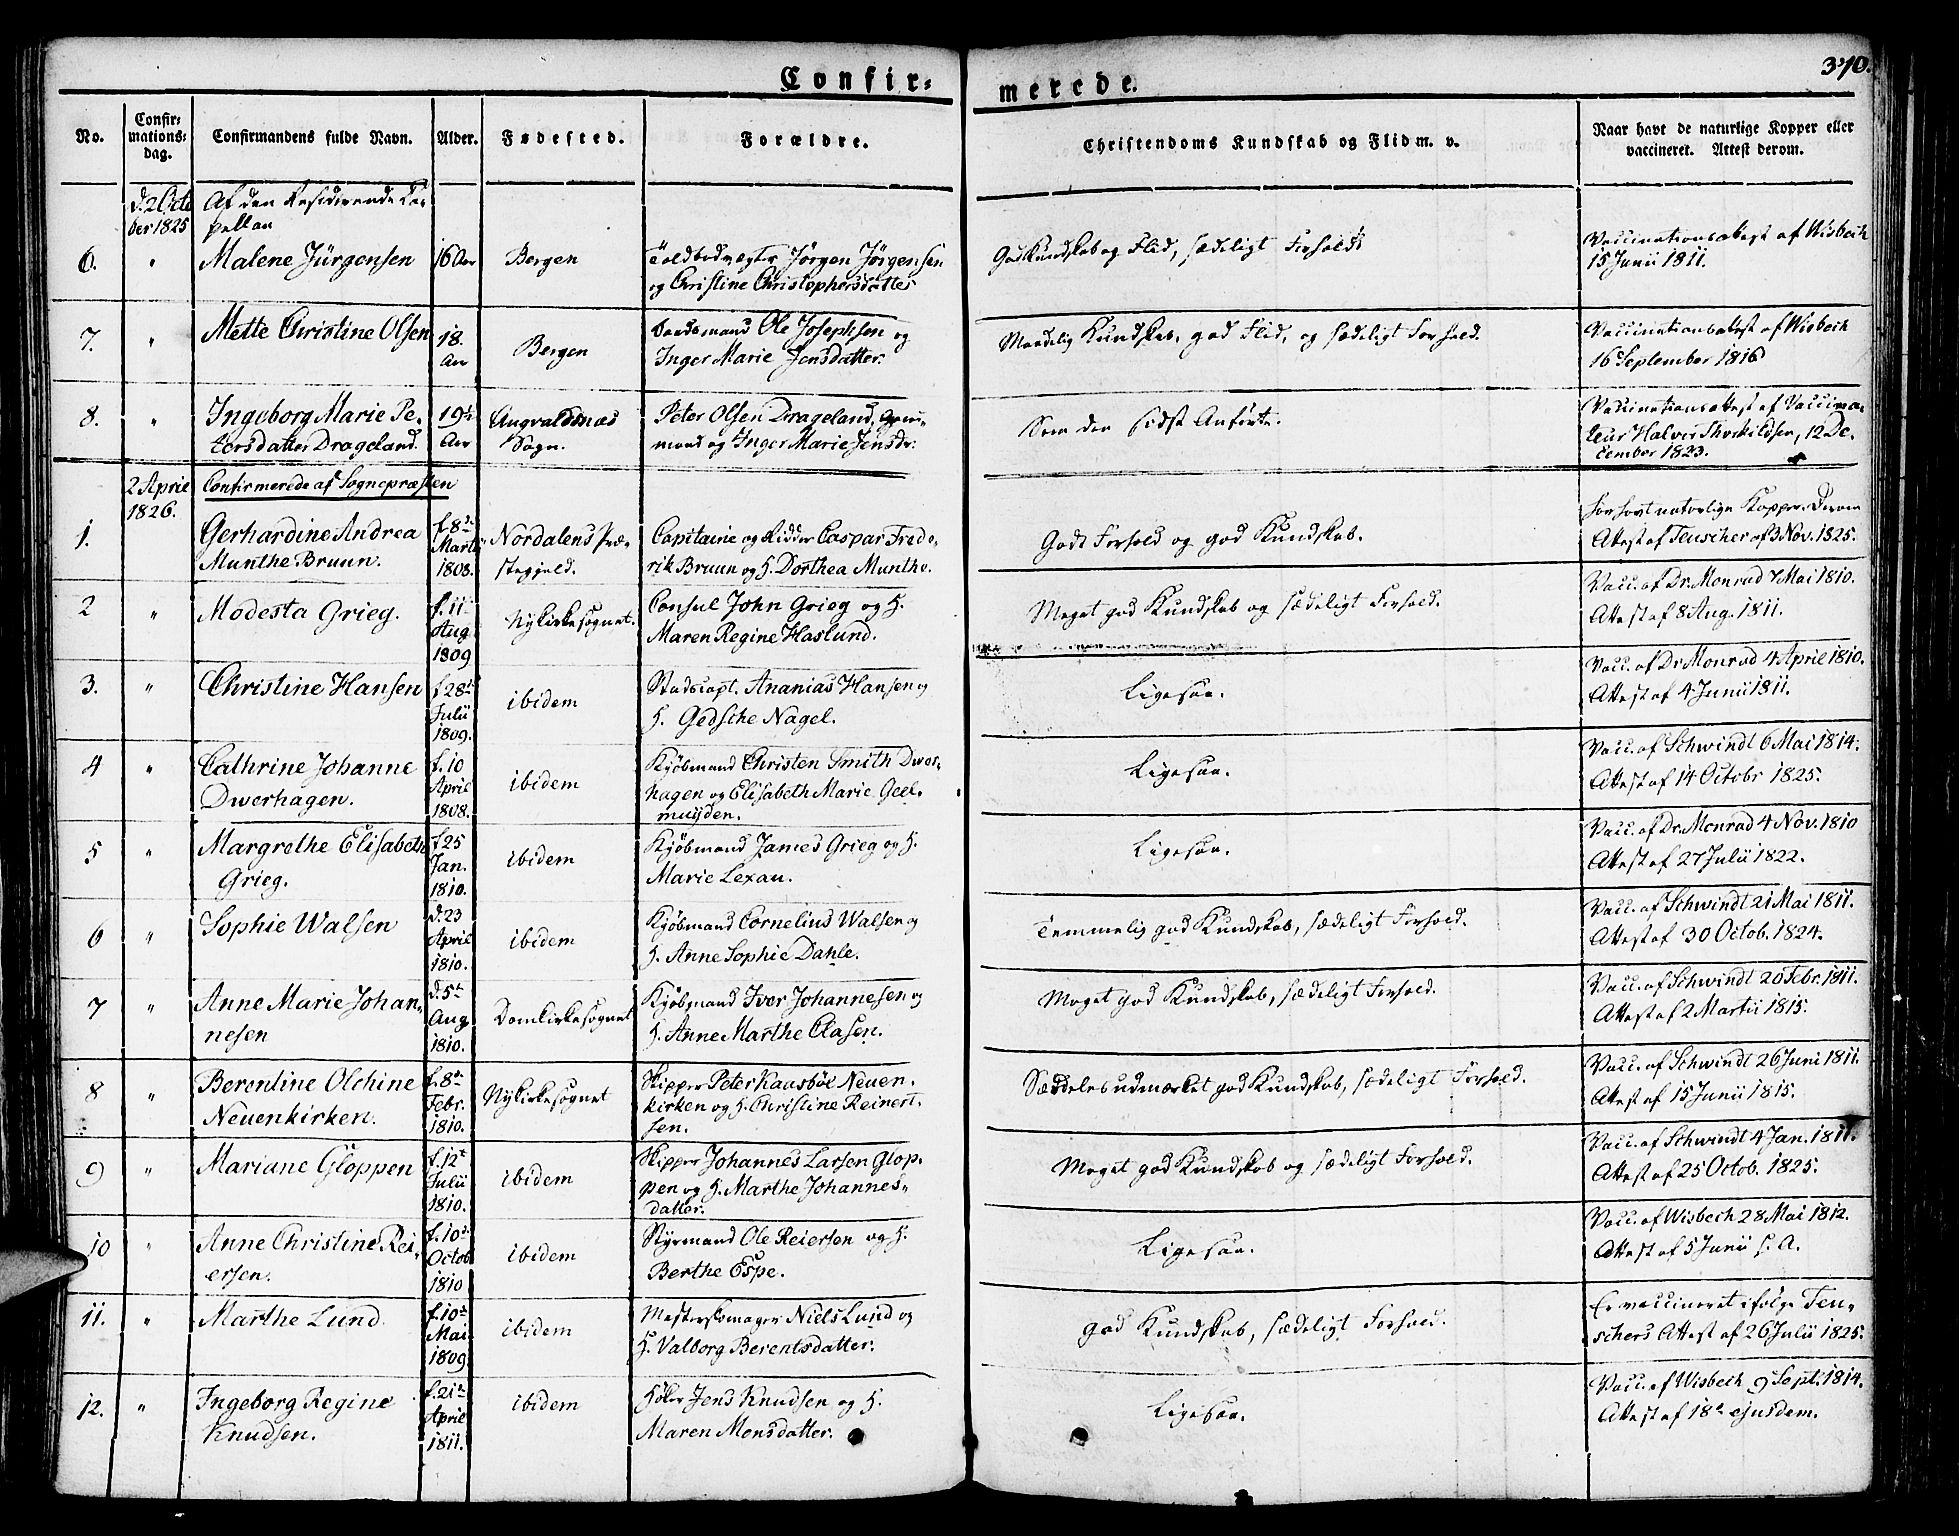 Confir-
merede.
370.
No.
Confir-
mations-
dag.
Confirmandens fulde Navn.
Alder.
Fødested.
Forældre.
Christendoms Kundskab og Flid m. v.
Naar havt de naturlige Kopper eller
vaccineret. Attest derom.
d. 2 Octo
ber 1825
Af den Residerende Ca-
pellan
6. " Malene Jürgensen 16 Aar Bergen
Toldbodvægter Jørgen Jørgensen
og Christine Christophersdatter
God Kundskab og Flid, sædeligt Forhold
Vaccinationsattest af Wisbech
15 Junii 1811.
7. " Mette Christine Olsen 18.
Aar
Bergen
Ole Josephsen og
Inger Marie Jensdatter.
Maadelig Kundskab, god Flid, og sædeligt Forhold.
Vaccinationsattest af Wisbech
16 September 1816
8. " Ingeborg Marie Pe-
tersdatter Drageland.
19
Aar
Augvaldsnæs
Sogn.
Peter Olsen Drageland,
mand og Inger Marie Jensdr.
Som den sidst Anførte.
Vaccinationsattest af Vaccina-
teur Halvor Thorkildsen, 12 De-
cember 1823.
2 April
1826.
Confirmerede af Sognepræsten
1. Gerhardine Andrea
Munthe Bruun.
f. 8de
Marts
1808.
Nordalens Præ-
stegjeld.
Capitaine og Ridder Caspar Frede-
rik Bruun og H. Dorthea Munthe.
Godt Forhold og god Kundskab.
har havt naturlige Kopper. Derom
Attest af Teuscher af 3 Nov. 1825.
2 " Modesta Grieg.
f. 11
Aug.
1809
Nykirkesognet.
Consul John Grieg og H.
Maren Regine Haslund.
Meget god Kundskab og sædeligt Forhold.
Vacc. af Dr. Monrad 7 Mai 1810.
Attest af 8 Aug. 1811.
3. " Christine Hansen
f. 28de
Julii
1809.
ibidem
Stadscapt. Ananias Hansen og
H. Gedsche Nagel.
Ligesaa.
Vacc. af Dr. Monrad 4 April 1810.
Attest af 4 Junii 1811.
4 " Cathrine Johanne
Dwerhagen.
f. 10
April
1808.
ibidem
Kjøbmand Christen Smith Dwer-
hagen og Elisabeth Marie Geel-
muyden.
Ligesaa.
Vacc. af Schwindt 6 Mai 1814.
Attest af 14 Octobr 1825.
5 " Margrethe Elisabeth
Grieg.
f. 25
Jan.
1810.
ibidem
Kjøbmand James Grieg og H.
Marie Lexau.
Ligesaa.
Vacc. af Dr. Monrad 4 Nov. 1810
Attest af 27 Julii 1822.
6 " Sophie Walsen
d. 23
April
1810.
ibidem
Kjøbmand Cornelius Walsen og
H. Anne Sophie Dahle.
Temmelig god Kundskab, sædeligt Forhold.
Vacc. af Schwindt 21 Mai 1811.
Attest af 30 Octob. 1824.
7 " Anne Marie Johan-
nesen
d. 5te
Aug
1810.
Domkirkesognet
Kjøbmand Iver Johannesen og
H. Anne Marthe Clasen.
Meget god Kundskab, sædeligt Forhold.
Vacc. af Schwindt 20 Febr. 1811.
Attest af 2 Martii 1815.
8 " Berentine Olchine
Neuenkirken.
f. 8de
Febr.
1810.
Nykirkesognet
Skipper Peter Kausböl Neuen-
kirken og H. Christine Reinert-
sen.
Særdeles udmærket god Kundskab, sædeligt Forhold.
Vacc. af Schwindt 26 Juni 1811.
Attest af 15 Junii 1815.
9 " Mariane Gloppen
f. 12te
Julii
1810.
ibidem
Skipper Johannes Larsen Glop-
pen og H. Marthe Johannes-
datter.
Meget god Kundskab og sædeligt Forhold.
Vacc. af Schwindt 4 Jan. 1811.
Attest af 25 Octob. 1825.
10 " Anne Christine Rei-
ersen.
f. 10de
Octob
1810
ibidem
Styrmand Ole Reiersen og H.
Berthe Espe.
Ligesaa.
Vacc. af Wisbech 28 Mai 1812.
Attest af 5 Junii s. A.
11. " Marthe Lund
f. 10de
Mai
1809
ibidem
Mesterskomager Niels Lund og
H. Valborg Berentsdatter.
god Kundskab, sædeligt Forhold.
Er vaccineret ifølge Teu-
schers Attest af 26 Julii 1825.
12. " Ingeborg Regine
Knudsen.
f. 21de
April
1811.
ibidem
Høker Jens Knudsen og H.
Maren Monsdatter.
Ligesaa.
Vacc. af Wisbech 9 Sept. 1814.
Attest af 18de ejusdem.